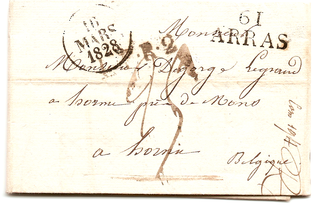 16
MARS
1828
61
ARRAS
R.2
Monsieur
Monsieur Degorge Legrand
à hornu près de Mons
à hornu
Belgique